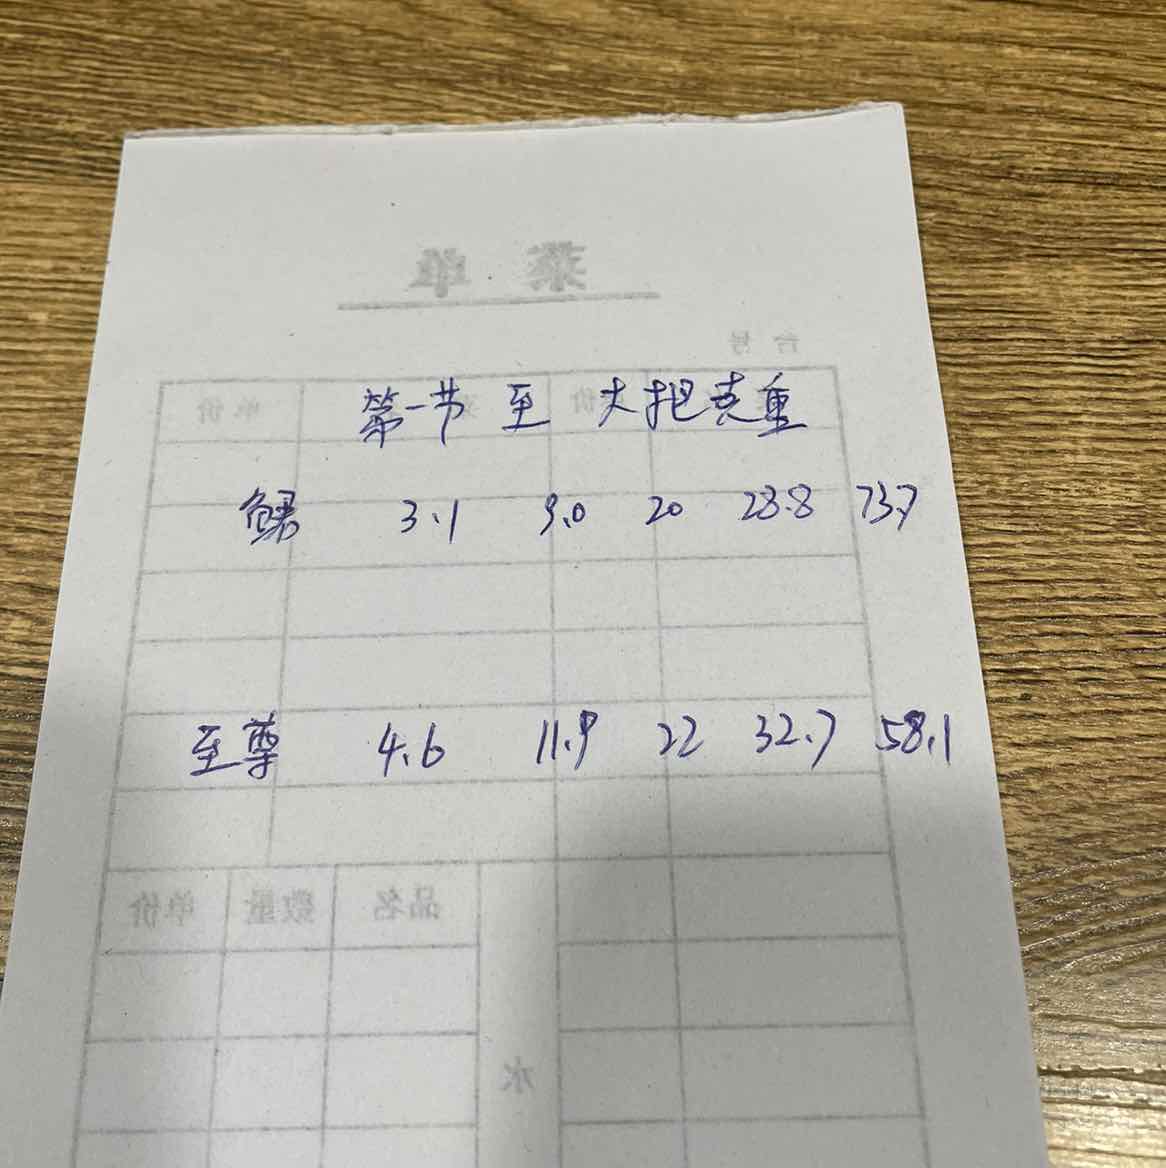 菜 单
台 号
单价
第一节 至 大把克重
3.1 9.0 20 28.8 73.7
至尊 4.6 11.9 22 32.7 58.1
单价 数量 品名
水